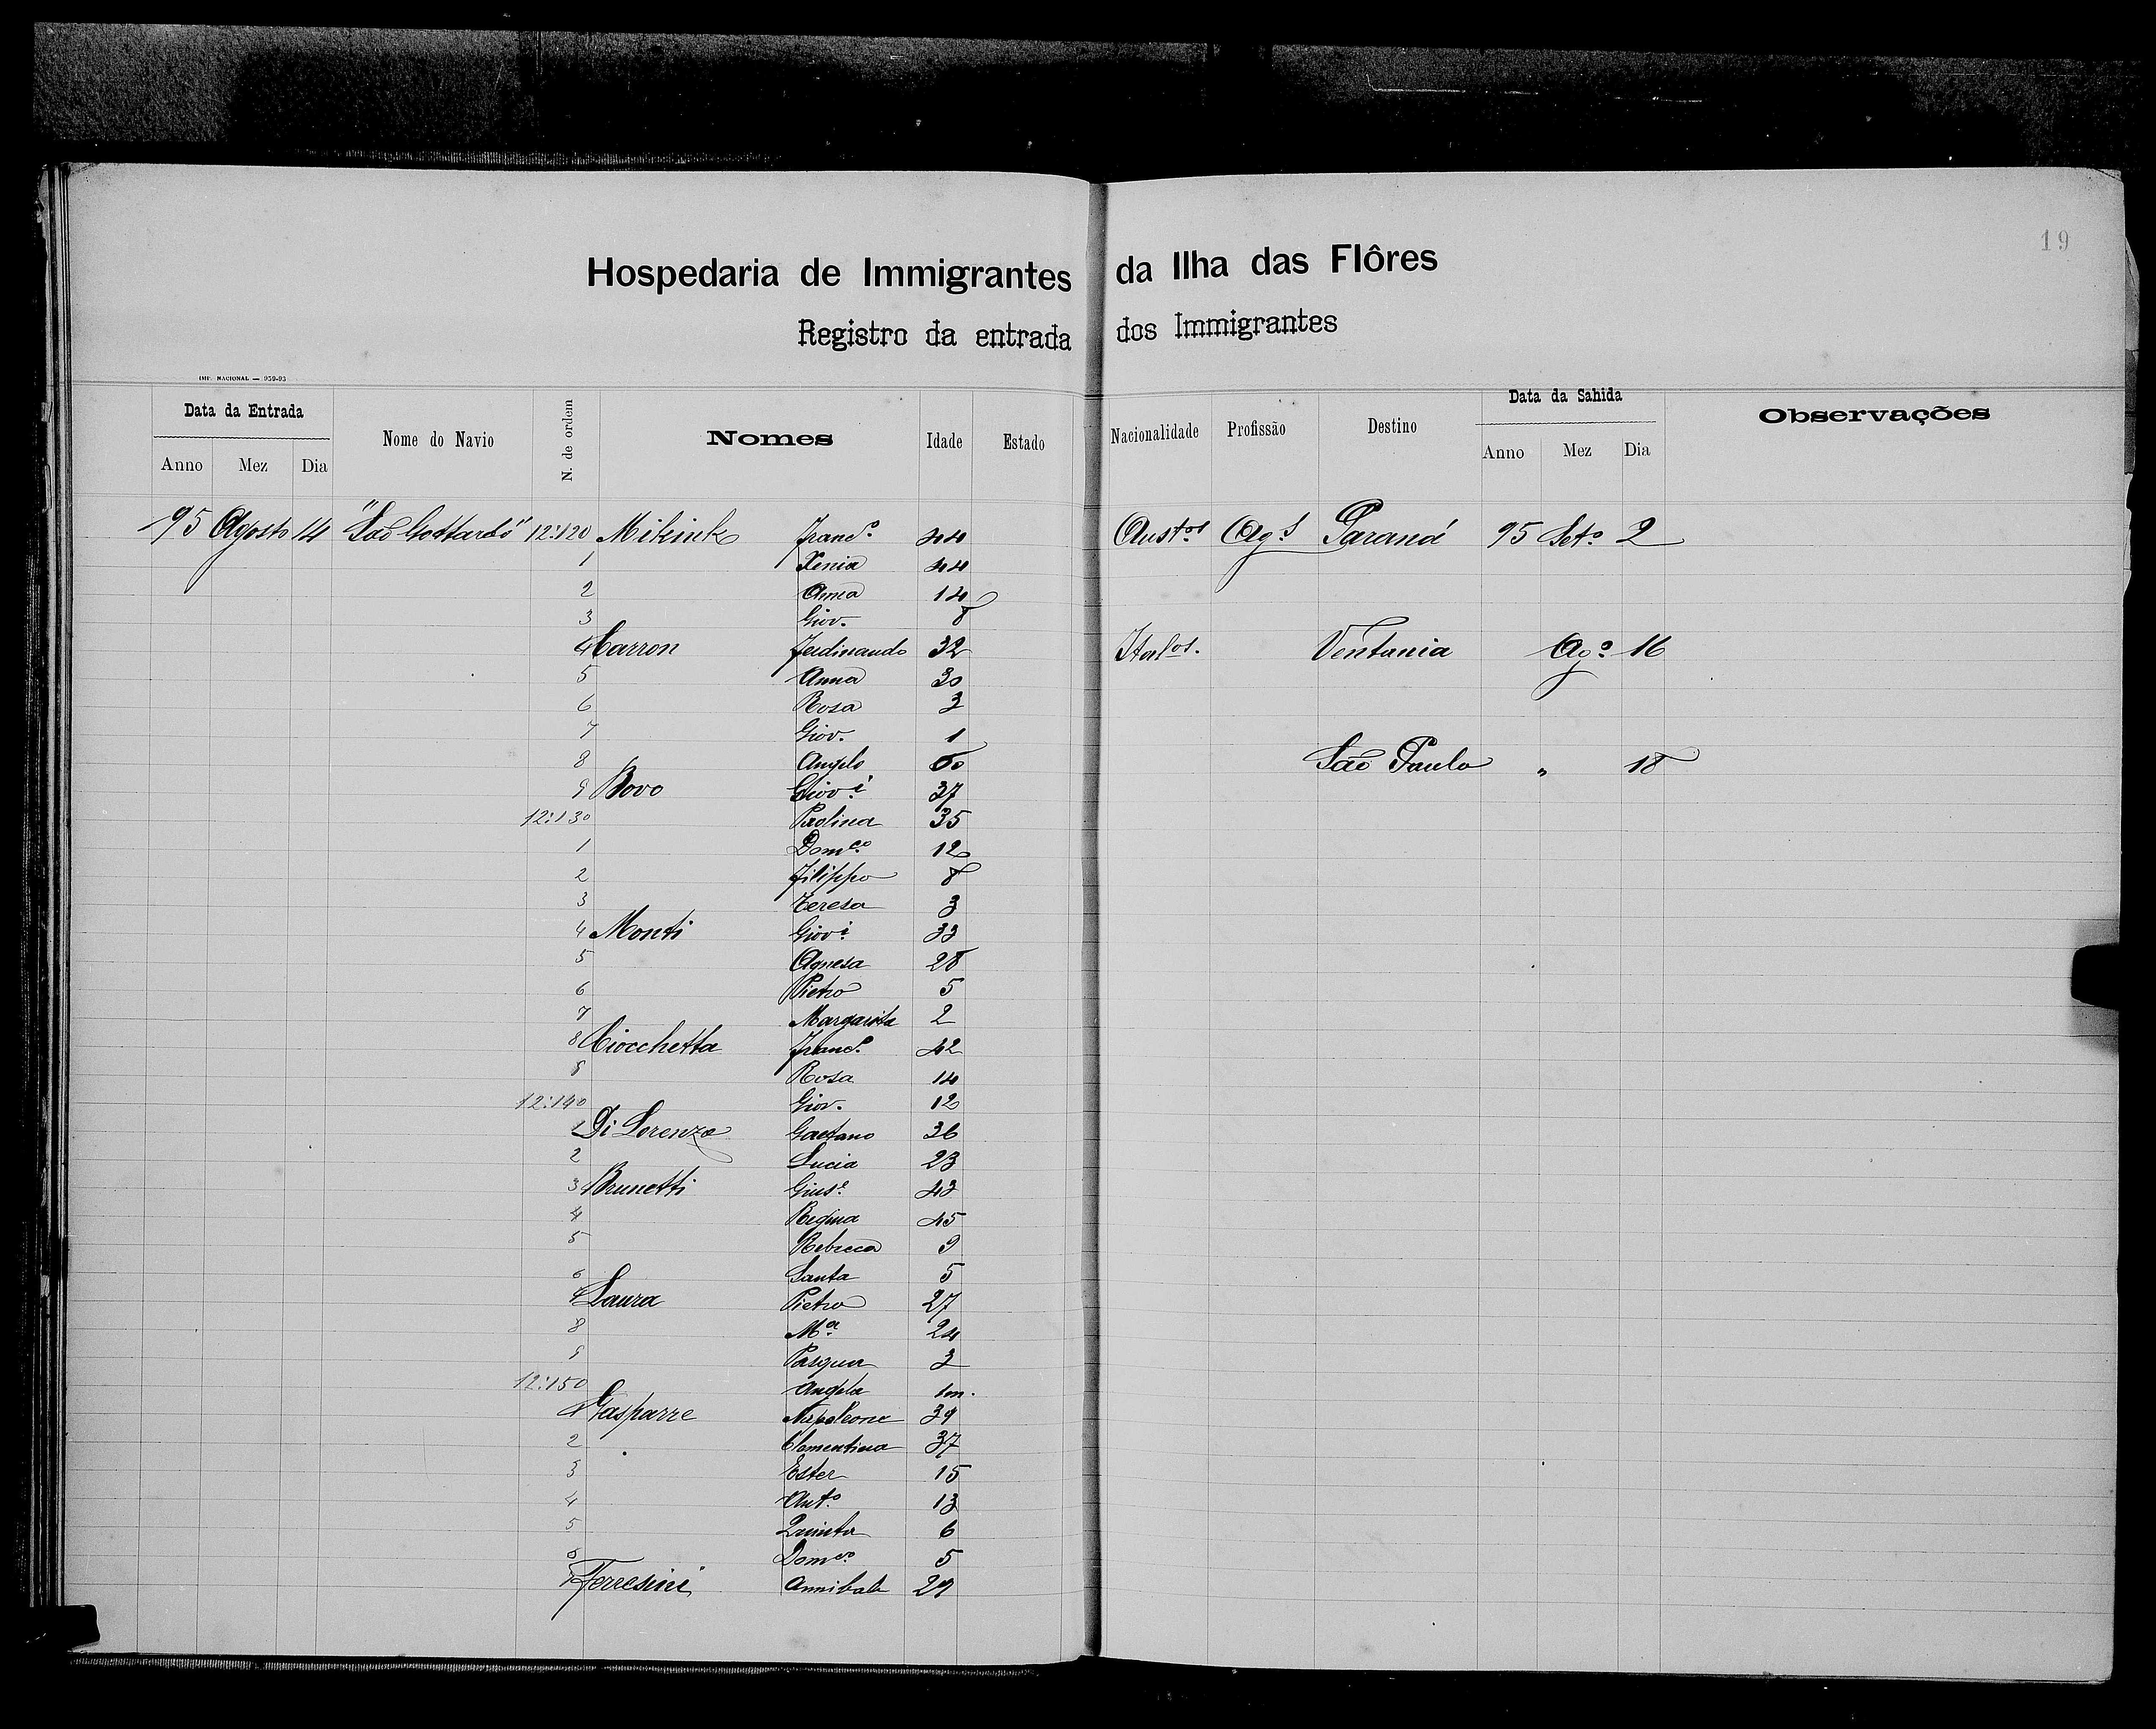 19
Hospedaria de Immigrantes da Ilha das Flôres
Registro da entrada dos Immigrantes
IMP. NACIONAL — 959-93
Data da Entrada Nome do Navio N. de ordem Nomes Idade Estado Nacionalidade Profissão Destino Data da Sahida Observações
Anno Mez Dia Anno Mez Dia
95 Agosto 14 "São Gottardo" 12:120 Mikink Franc.º 44 Austos Ags Paraná 95 Set.º 2
1 Xenia 44
2 Anna 14
3 Giov. 8
4 Carron Ferdinando 32 Italos. Ventania Ag.º 16
5 Anna 30
6 Rosa 3
7 Giov. 1
8 Angelo 60 São Paulo " 18
9 Bovo Giov.i 37
12:130 Paolina 35
1 Dom.co 12
2 Filippo 8
3 Teresa 3
4 Monti Giov.i 33
5 Agnesa 28
6 Pietro 5
7 Margarita 2
8 Ciocchetta Franc.º 42
9 Rosa 14
12:140 Giov. 12
1 Di Lorenzo Gaetano 36
2 Lucia 23
3 Brunetti Gius.e 43
4 Regina 45
5 Rebecca 9
6 Santa 5
7 Laura Pietro 27
8 M.a 24
9 Pasqua 3
12:150 Angela 1m.
1 Gasparre Napoleone 39
2 Clementina 37
3 Ester 15
4 Ant.º 13
5 Quinta 6
6 Dom.co 5
7 Ferresini Annibale 29